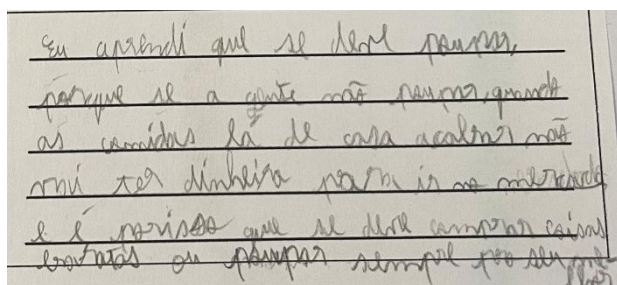 Eu aprendi que se deve poupar,
porque se a gente não poupar, quando
as comidas lá de casa acabar não
vai ter dinheiro para ir no mercado
e é porisso que se deve comprar coisas
baratas ou poupar sempre pro seu me
lhor